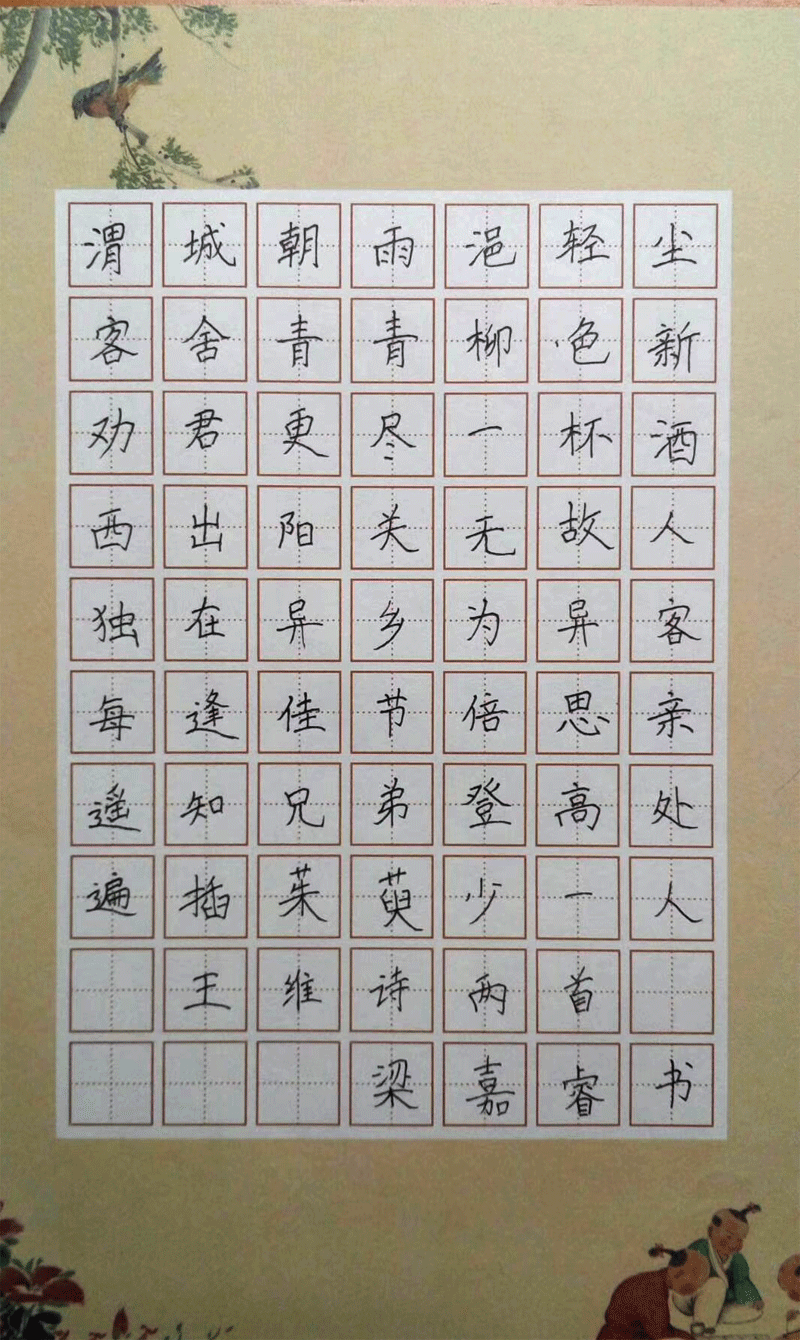 渭城朝雨浥轻尘
客舍青青柳色新
劝君更尽一杯酒
西出阳关无故人
独在异乡为异客
每逢佳节倍思亲
遥知兄弟登高处
遍插茱萸少一人
王维诗两首
梁嘉睿书